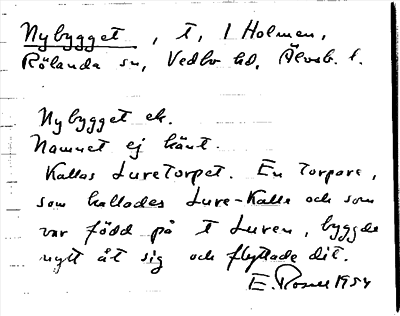 Nybygget, t, 1 Holmen,
Rölanda sn, Vedbo hd, Älvsb. l.
Nybygget ek.
Namnet ej känt.
Kallas Luretorpet. En torpare,
som kallades Lure-Kalle och som
var född på t Luren, byggde
nytt åt sig och flyttade dit.
E. Rosell 1954